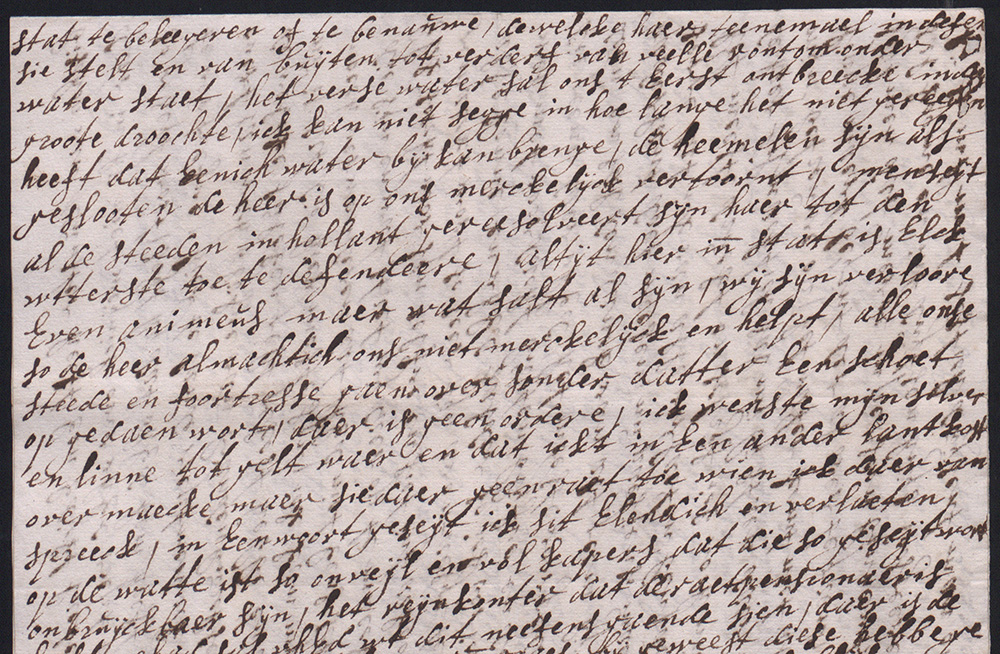 stat te beleegeren of te benauwe, dewelcke haer teenemael in desen
sie stelt en van buijten tot verders van veelle rontom onder
water staet, het verse water sal ons 't Eerst ontbreecke in dese
groote droochte, ick kan niet segge in hoe lange het niet gereegen
heeft dat Eenich water by kan brenge, de heemelen syn als
geslooten de heer is op ons merckelijck vertoornt, men seijt
al de steeden in hollant geresolveert syn haer tot den
wtterste toe te defendeere, altyt hier in stat is Elck
Even animeus maer wat salt al syn, wy syn verloore,
so de heer almachtich ons niet merckelijck en helpt, alle onse
steede en foortresse gaen over sonder datter Een schoet
op gedaen wort, daer is geen ordere, ick wenste mijn silver
en linne tot gelt waer en dat ickt in Een ander lant kost
over maecke maer sie daer geen raet toe wien ick daer van
spreeck, in Een woort geseijt ick sit Elendich en verlaeten
op de watte ist so onveyl en vol kapers dat die so geseijt wort
onbruijckbaer syn, het reynkonter dat de raetpensionaris
wt dit neefens gaende sien, daer is de
geweest diese hebbe ge